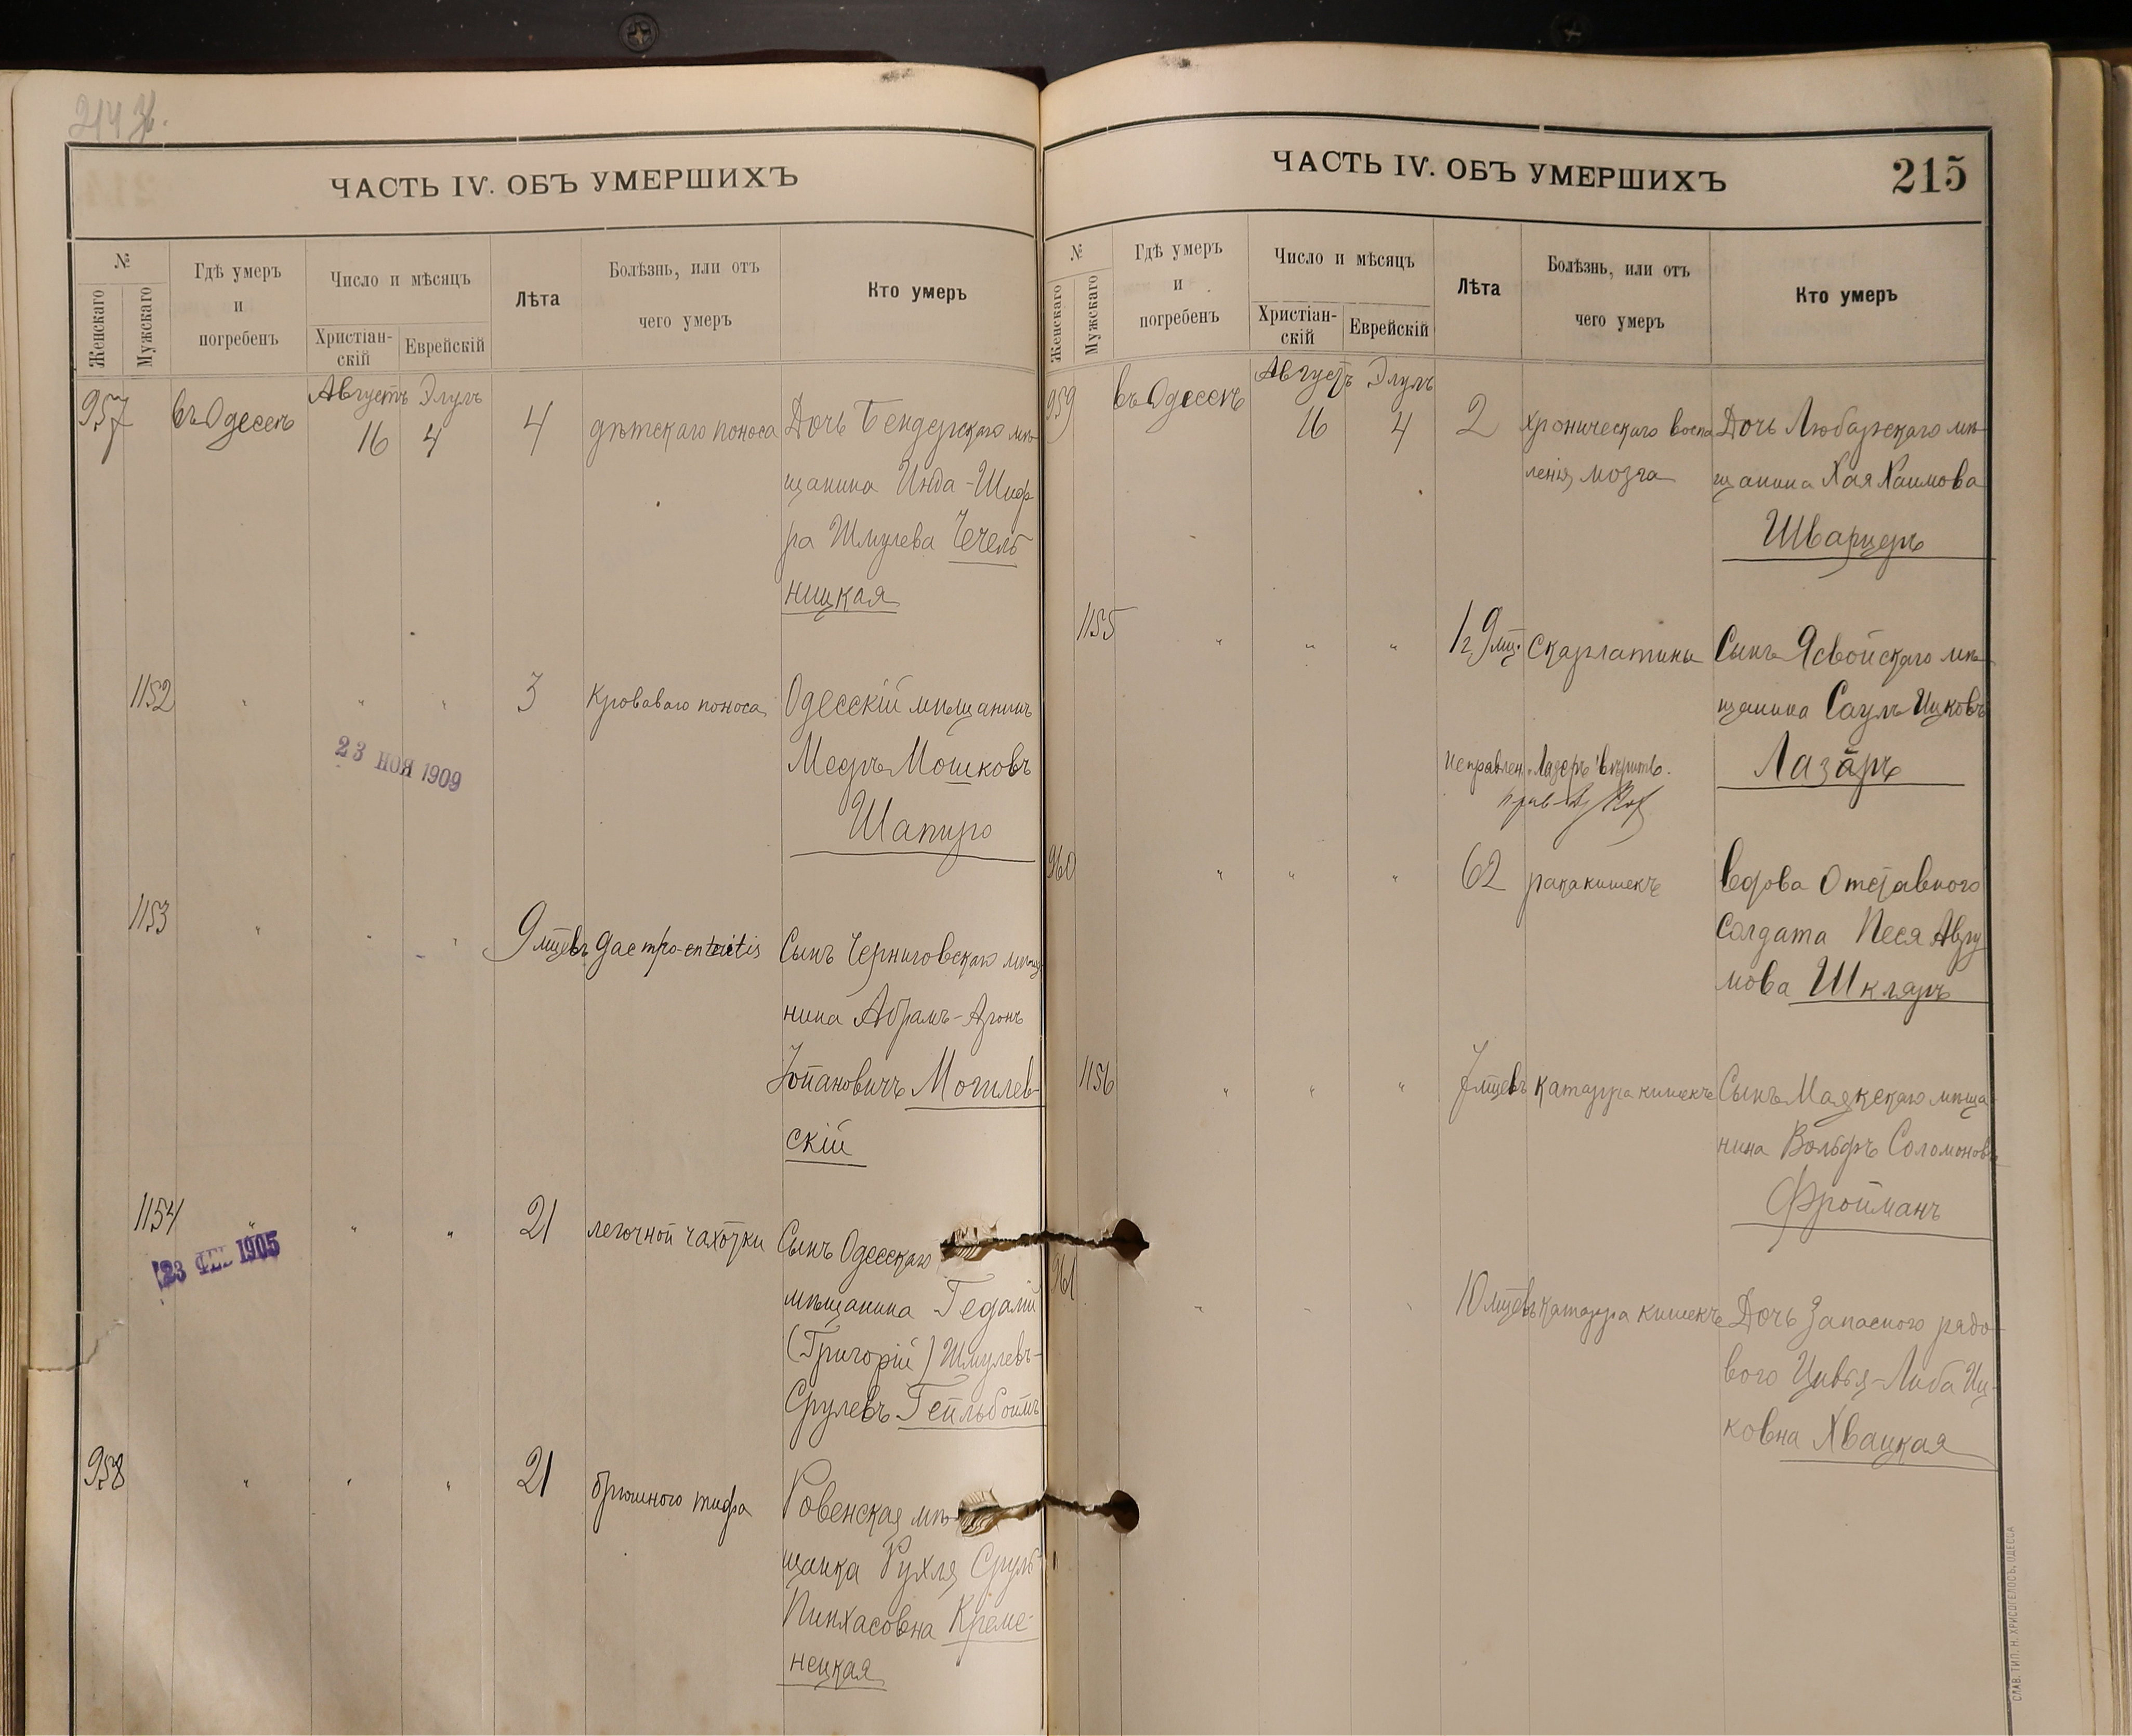 214 зв.
ЧАСТЬ IV. ОБЪ УМЕРШИХЪ
№
Женскаго
Мужскаго
Гдѣ умеръ
и
погребенъ
Число и мѣсяцъ
Христіан-
скій
Еврейскій
Лѣта
Болѣзнь, или отъ
чего умеръ
Кто умеръ
Августъ Элулъ
957 въ Одессѣ 16 4 4 дѣтскаго поноса Дочь Бендерскаго мѣ-
щанина Инда-Шиф-
ра Шмулева Чечель
ницкая
1152 " " " 3 Кроваваго поноса Одесскій мѣщанинъ
Мееръ Мошковъ
Шапиро
23 НОЯ 1909
1153 " " " 9 мцевъ Gastro-enteritis Сынъ Черниговскаго мѣща
нина Абрамъ-Аронъ
Могилев-
скій
1154 " " " 21 легочной чахотки Сынъ Одесскаго
мѣщанина Гедалій
(Григорій) Шмулевъ-
Срулевъ Гейльбоимъ
23 ФЕВ 1905
958 " " " 21 брюшного тифа Ровенская мѣ-
щанка Рухля Сруль-
Пинхасовна Креме-
нецкая
ЧАСТЬ IV. ОБЪ УМЕРШИХЪ
215
№
Женскаго
Мужскаго
Гдѣ умеръ
и
погребенъ
Число и мѣсяцъ
Христіан-
скій
Еврейскій
Лѣта
Болѣзнь, или отъ
чего умеръ
Кто умеръ
Августъ Элулъ
959 въ Одессѣ 16 4 2 хроническаго воспа Дочь Любарскаго мѣ-
ленія мозга щанина Хая Хаимова
Шварцеръ
1155 " " " 1 г 9 мц. Скарлатины Сынъ Ясвойскаго мѣ-
щанина Саулъ Ицковъ
Исправлен. "Лазеръ" вѣрить. Лазаръ
960 " " " 62 рака кишекъ Вдова Отставного
Солдата Песя Авру
мова Шкляръ
1156 " " " 7 мцевъ катарра кишекъ Сынъ Маякскаго мѣща
нина Вольфъ Соломоновъ
Фройманъ
961 " " " 10 мцевъ катарра кишекъ Дочь Запасного рядо-
вого Цивья-Либа Иц-
ковна Хвацкая
СЛАВ. ТИП. Н. ХРИСОГЕЛОСЪ, ОДЕССА